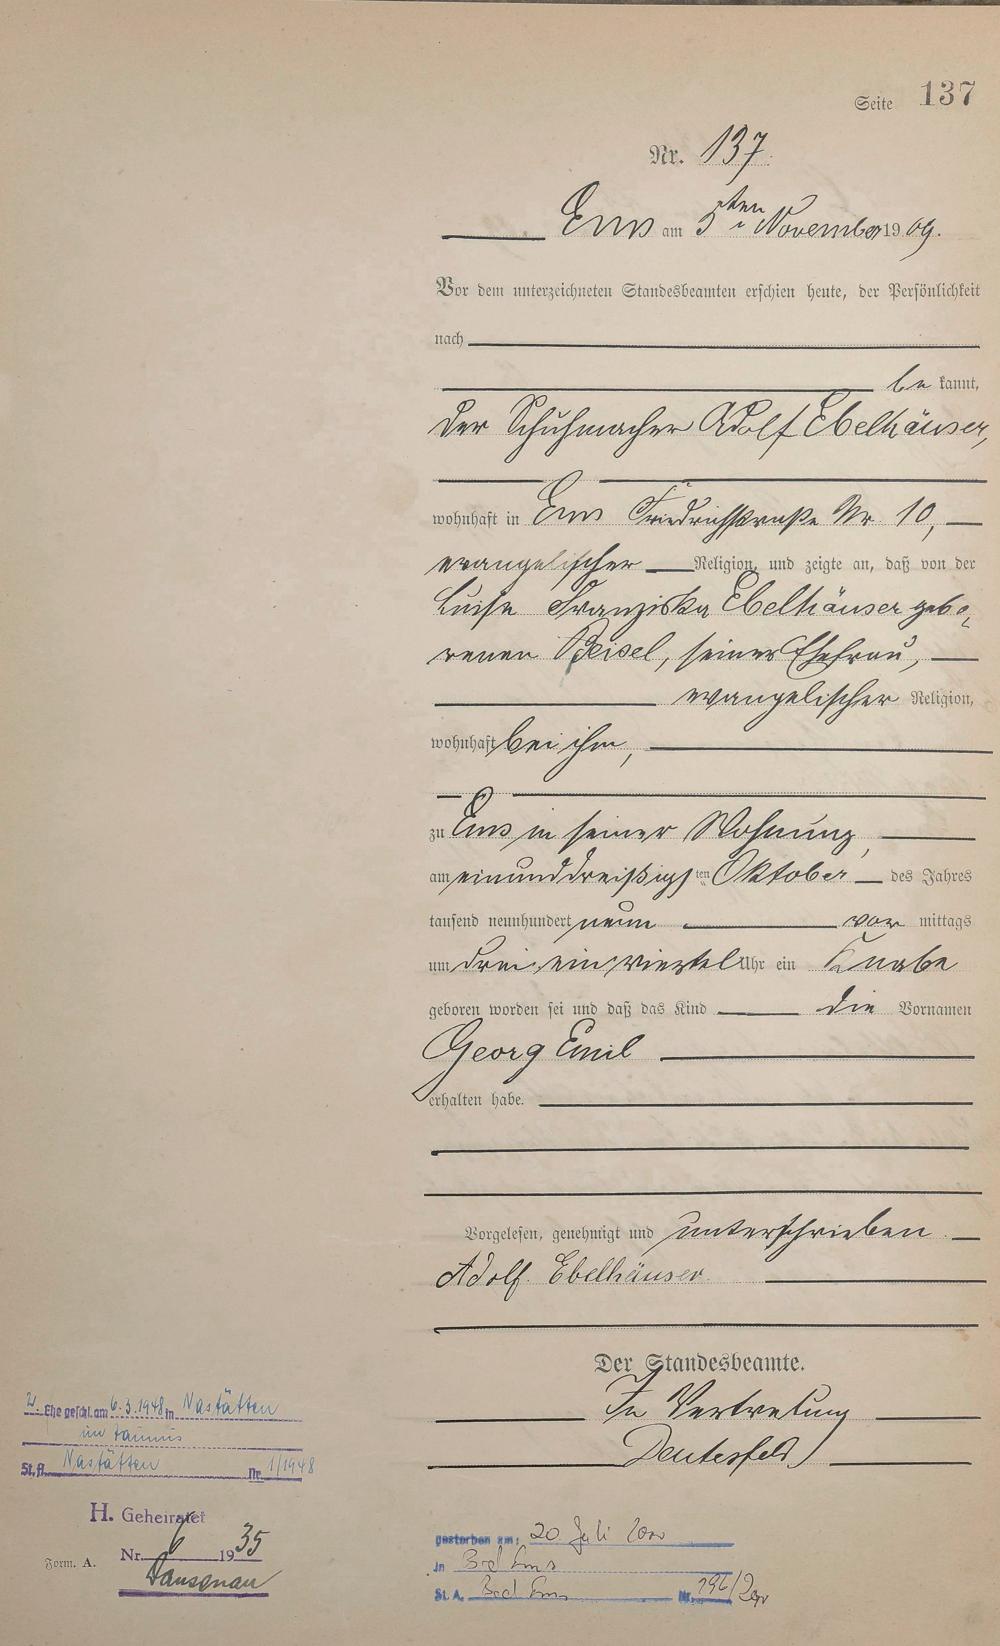 Seite 137
Nr. 137.
Ems am 5ten November 1909.
Vor dem unterzeichneten Standesbeamten erschien heute, der Persönlichkeit
nach
be kannt,
der Schuhmacher Adolf Ebelhäuser,
wohnhaft in Ems Friedrichstraße Nr 10,
evangelischer Religion, und zeigte an, daß von der
Luise Franziska Ebelhäuser gebo,
renen Beisel, seiner Ehefrau,
evangelischer Religion,
wohnhaft bei ihm,
zu Ems in seiner Wohnung,
am einunddreißigsten Oktober des Jahres
tausend neunhundert neun vor mittags
um drei ein viertel Uhr ein Knabe
geboren worden sei und daß das Kind die Vornamen
Georg Emil
erhalten habe.
Vorgelesen, genehmigt und unterschrieben
Adolf Ebelhäuser.
Der Standesbeamte.
In Vertretung
2. Ehe geschl. am 6.3.1948 in Nastätten
im Taunus
St. A. Nastätten Nr. 1/1948
H. Geheiratet
Nr. 6 1935
Dausenau
Form. A.
gestorben am: 20 Juli 2000
in Bad Ems
St. A. Bad Ems Nr.